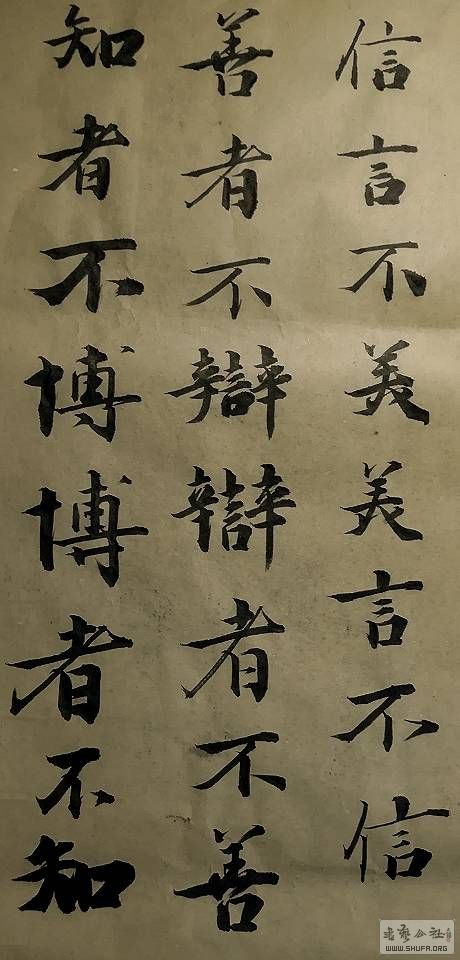 信言不美美言不信
善者不辯辯者不善
知者不博博者不知
WWW.SHUFA.ORG